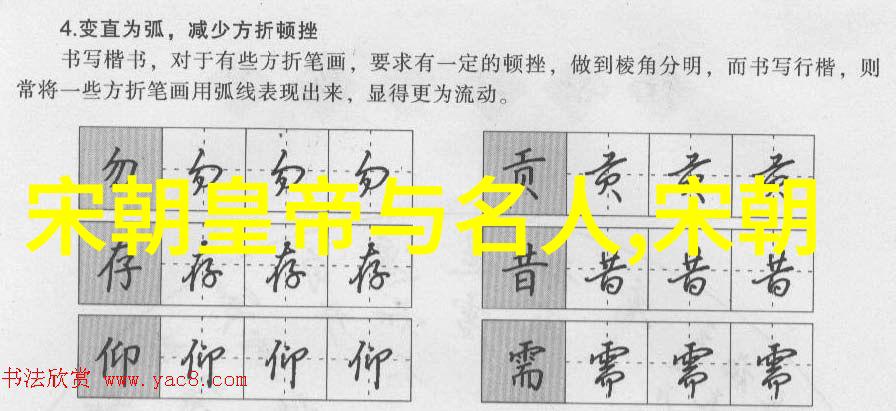 4.变直为弧，减少方折顿挫
书写楷书，对于有些方折笔画，要求有一定的顿挫，做到棱角分明，而书写行楷，则
常将一些方折笔画用弧线表现出来，显得更为流动。
勿 勿 勿 勿
贡 贡 贡 贡
宋朝皇帝与名人,宋朝
存 存 存 存
昔 昔 昔 昔
仰 仰 仰 仰
需 需 需 需
书法欣赏 www.yac8.com